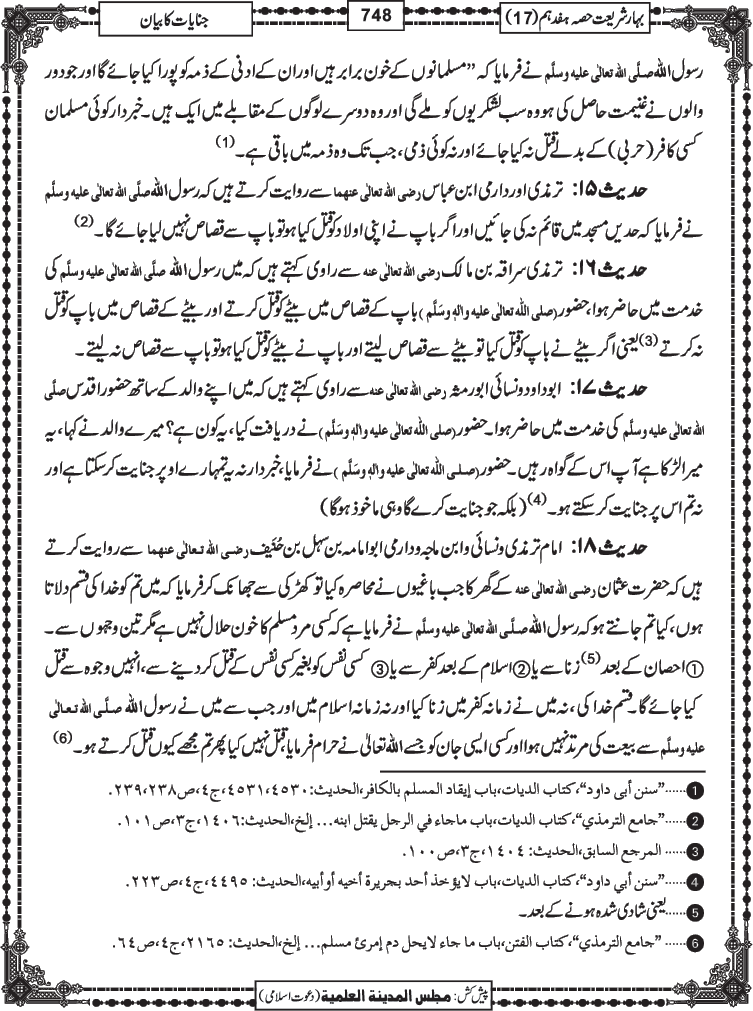 بہارِ شریعت حصہ ہفدہم (17)
748
جنایات کا بیان
رسول اللہ صلَّی اللہ تعالٰی علیہ وسلَّم نے فرمایا کہ ”مسلمانوں کے خون برابر ہیں اور ان کے ادنیٰ کے ذمہ کو پورا کیا جائے گا اور جو دور
والوں نے غنیمت حاصل کی ہو وہ سب لشکریوں کو ملے گی اور وہ دوسرے لوگوں کے مقابلے میں ایک ہیں۔ خبردار کوئی مسلمان
کسی کافر (حربی) کے بدلے قتل نہ کیا جائے اور نہ کوئی ذمی، جب تک وہ ذمہ میں باقی ہے۔(1)
حدیث ۱۵: ترمذی اور دارمی ابن عباس رضی اللہ تعالٰی عنہما سے روایت کرتے ہیں کہ رسول اللہ صلَّی اللہ تعالٰی علیہ وسلَّم
نے فرمایا کہ حدیں مسجد میں قائم نہ کی جائیں اور اگر باپ نے اپنی اولاد کو قتل کیا ہو تو باپ سے قصاص نہیں لیا جائے گا۔(2)
حدیث ۱۶: ترمذی سراقہ بن مالک رضی اللہ تعالٰی عنہ سے راوی کہتے ہیں کہ میں رسول اللہ صلَّی اللہ تعالٰی علیہ وسلَّم کی
خدمت میں حاضر ہوا، حضور (صلی اللہ تعالٰی علیہ والہٖ وسَلَّم) باپ کے قصاص میں بیٹے کو قتل کرتے اور بیٹے کے قصاص میں باپ کو قتل
نہ کرتے(3) یعنی اگر بیٹے نے باپ کو قتل کیا تو بیٹے سے قصاص لیتے اور باپ نے بیٹے کو قتل کیا ہو تو باپ سے قصاص نہ لیتے۔
حدیث ۱۷: ابوداود و نسائی ابو رمثہ رضی اللہ تعالٰی عنہ سے راوی کہتے ہیں کہ میں اپنے والد کے ساتھ حضور اقدس صلَّی
اللہ تعالٰی علیہ وسلَّم کی خدمت میں حاضر ہوا۔ حضور (صلی اللہ تعالٰی علیہ والہٖ وسَلَّم) نے دریافت کیا، یہ کون ہے؟ میرے والد نے کہا، یہ
میرا لڑکا ہے آپ اس کے گواہ رہیں۔ حضور (صلی اللہ تعالٰی علیہ والہٖ وسَلَّم) نے فرمایا، خبردار نہ یہ تمہارے اوپر جنایت کر سکتا ہے اور
نہ تم اس پر جنایت کر سکتے ہو۔(4) (بلکہ جو جنایت کرے گا وہی ماخوذ ہوگا)
حدیث ۱۸: امام ترمذی و نسائی و ابن ماجہ و دارمی ابو امامہ بن سہل بن حُنَیف رضی اللہ تعالٰی عنہما سے روایت کرتے
ہیں کہ حضرت عثمان رضی اللہ تعالٰی عنہ کے گھر کا جب باغیوں نے محاصرہ کیا تو کھڑکی سے جھانک کر فرمایا کہ میں تم کو خدا کی قسم دلاتا
ہوں، کیا تم جانتے ہو کہ رسول اللہ صلَّی اللہ تعالٰی علیہ وسلَّم نے فرمایا ہے کہ کسی مرد مسلم کا خون حلال نہیں ہے مگر تین وجہوں سے۔
①احصان کے بعد(5) زنا سے یا②اسلام کے بعد کفر سے یا③ کسی نفس کو بغیر کسی نفس کے قتل کر دینے سے، انہیں وجوہ سے قتل
کیا جائے گا۔ قسم خدا کی، نہ میں نے زمانہ کفر میں زنا کیا اور نہ زمانہ اسلام میں اور جب سے میں نے رسول اللہ صلَّی اللہ تعالٰی
علیہ وسلَّم سے بیعت کی مرتد نہیں ہوا اور کسی ایسی جان کو جسے اللہ تعالیٰ نے حرام فرمایا، قتل نہیں کیا پھر تم مجھے کیوں قتل کرتے ہو۔(6)
❶......”سنن أبی داود“، کتاب الدیات، باب إیقاد المسلم بالکافر، الحدیث: ٤٥٣٠، ٤٥٣١، ج٤، ص٢٣٨، ٢٣٩.
❷......”جامع الترمذي“، کتاب الدیات، باب ماجاء في الرجل یقتل ابنہ... إلخ، الحدیث: ١٤٠٦، ج٣، ص١٠١.
❸...... المرجع السابق، الحدیث: ١٤٠٤، ج٣، ص١٠٠.
❹......”سنن أبي داود“، کتاب الدیات، باب لایؤخذ أحد بجریرة أخیہ أو أبیہ، الحدیث: ٤٤٩٥، ج٤، ص٢٢٣.
❺......یعنی شادی شدہ ہونے کے بعد۔
❻...... ”جامع الترمذي“، کتاب الفتن، باب ما جاء لایحل دم إمرئ مسلم... إلخ، الحدیث: ٢١٦٥، ج٤، ص٦٤.
پیش کش: مجلس المدینة العلمیة (دعوتِ اسلامی)